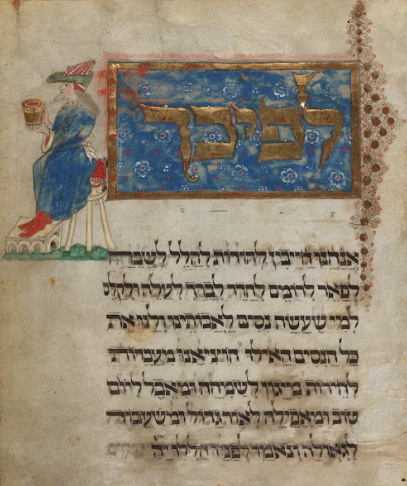 לפיכך
אנחנו חייבין להודות להלל לשבח
לפאר לרומם להדר לברך לעלה ולקלס
למי שעשה נסים לאבותינו ולנו את
כל הנסים האילו הוציאנו מעבדות
לחירות מיגון לשמחה ומאבל ליום
טוב ומאפילה לאור גדול ומשעבוד
לגאולה ונאמר לפניו הללו יה